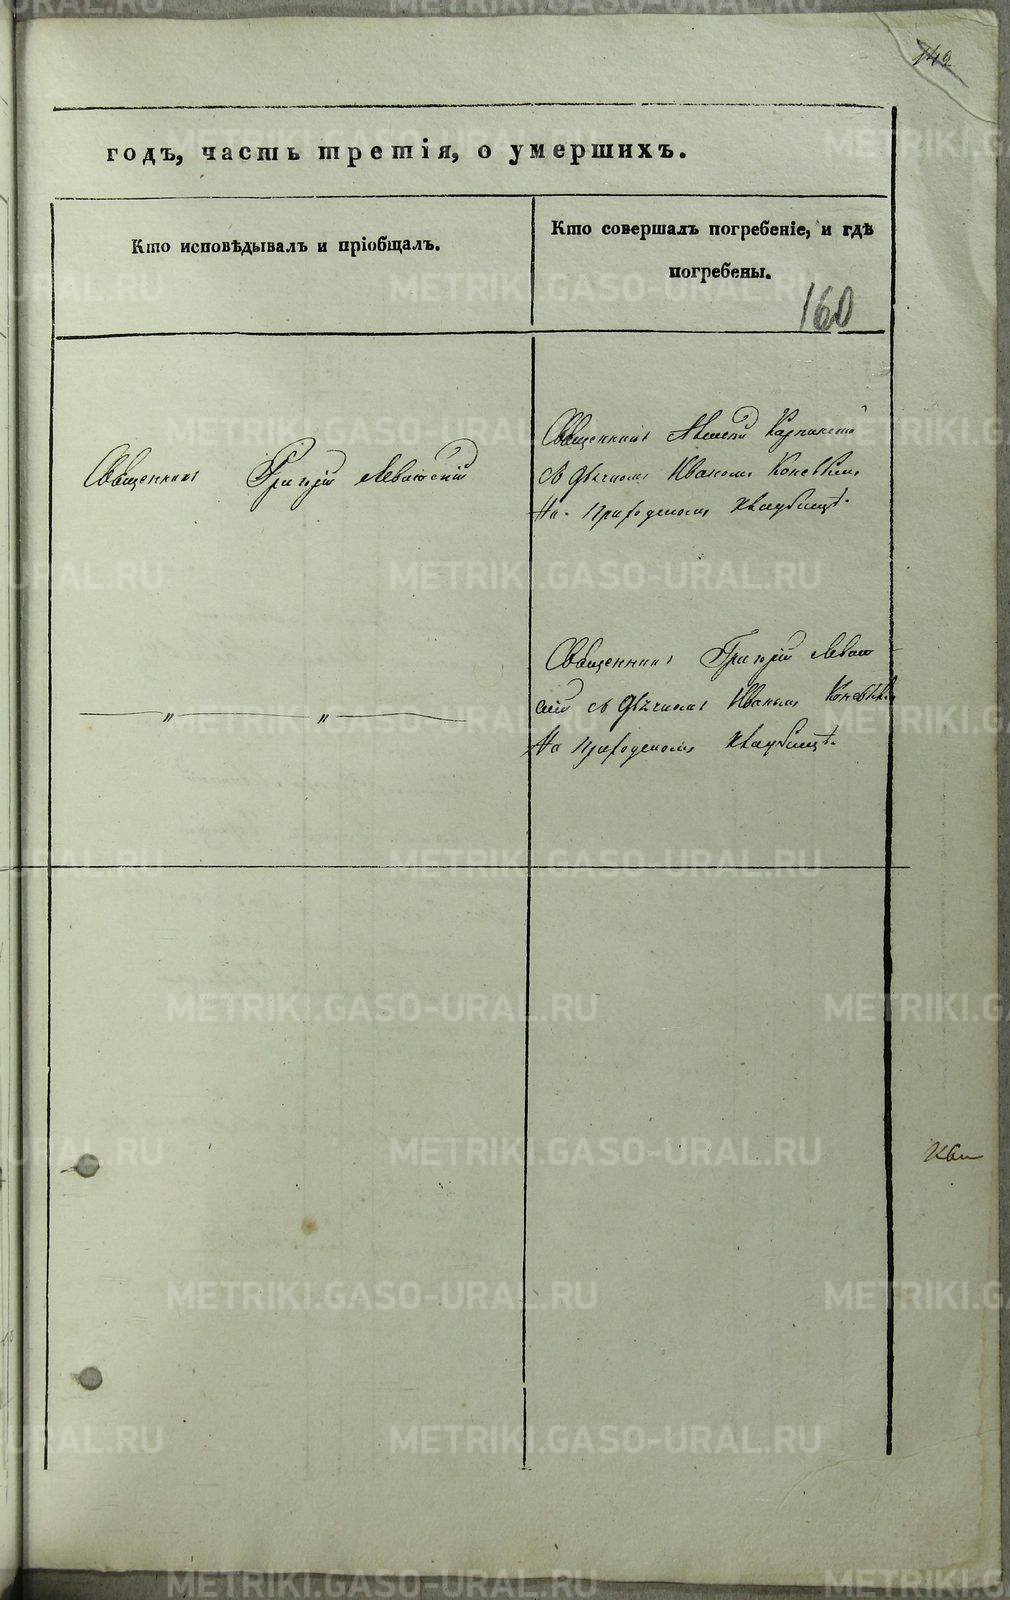 годъ, часть третія, о умершихъ.
Кто исповѣдывалъ и пріобщалъ.
Кто совершалъ погребеніе, и гдѣ
погребены.
160
Священникъ Григорій Левитскій
Священникъ Алексій Карпинскій
съ дьячкомъ Иваномъ
На Приходскомъ кладбищѣ.
— „ — „ —
Священникъ Григорій Левит
скій съ дьячкомъ Иваномъ
На Приходскомъ кладбищѣ.
METRIKI.GASO-URAL.RU